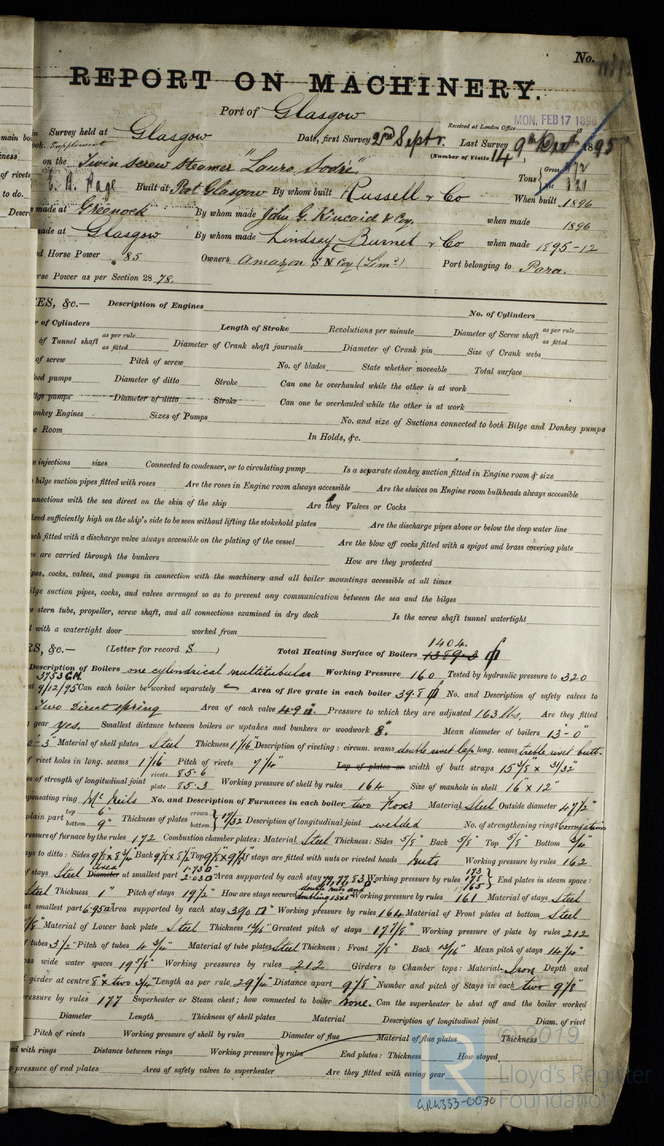 No.
REPORT ON MACHINERY.
Port of Glasgow
Received at London Office MON. FEB 17 1896
Survey held at Glasgow Date, first Survey 28th Septr. Last Survey 9th Decr. 1895
Supplement (Number of Visits 14)
on the Twin screw steamer "Lauro Sodré" Tons Gross
Page Built at Port Glasgow By whom built Russell & Co When built 1896
made at Greenock By whom made John G. Kincaid & Coy. when made 1896
made at Glasgow By whom made Lindsay Burnet & Co when made 1895-12
Horse Power 85 Owners Amazon S N Coy (Limd) Port belonging to Para.
Horse Power as per Section 28 78.
ES, &c.— Description of Engines No. of Cylinders
of Cylinders Length of Stroke Revolutions per minute Diameter of Screw shaft as per rule as fitted
of Tunnel shaft as per rule as fitted Diameter of Crank shaft journals Diameter of Crank pin Size of Crank webs
of screw Pitch of screw No. of blades State whether moveable Total surface
eed pumps Diameter of ditto Stroke Can one be overhauled while the other is at work
ilge pumps Diameter of ditto Stroke Can one be overhauled while the other is at work
onkey Engines Sizes of Pumps No. and size of Suctions connected to both Bilge and Donkey pumps
e Room In Holds, &c.
injections sizes Connected to condenser, or to circulating pump Is a separate donkey suction fitted in Engine room & size
bilge suction pipes fitted with roses Are the roses in Engine room always accessible Are the sluices on Engine room bulkheads always accessible
nnections with the sea direct on the skin of the ship Are they Valves or Cocks
xed sufficiently high on the ship's side to be seen without lifting the stokehold plates Are the discharge pipes above or below the deep water line
ach fitted with a discharge valve always accessible on the plating of the vessel Are the blow off cocks fitted with a spigot and brass covering plate
es are carried through the bunkers How are they protected
ipes, cocks, valves, and pumps in connection with the machinery and all boiler mountings accessible at all times
ilge suction pipes, cocks, and valves arranged so as to prevent any communication between the sea and the bilges
stern tube, propeller, screw shaft, and all connections examined in dry dock Is the screw shaft tunnel watertight
with a watertight door worked from
RS, &c.— (Letter for record S) Total Heating Surface of Boilers 1404.
Description of Boilers one cylindrical multitubular Working Pressure 160 Tested by hydraulic pressure to 320
3753 G.H. 9/12/95 Can each boiler be worked separately Area of fire grate in each boiler 39.8 No. and Description of safety valves to
Two Direct spring Area of each valve 4.9 Pressure to which they are adjusted 163 lbs. Are they fitted
gear yes. Smallest distance between boilers or uptakes and bunkers or woodwork 8". Mean diameter of boilers 13'-0"
Material of shell plates Steel Thickness 1 1/16" Description of riveting: circum. seams double rivet lap long. seams treble rivet butt
of rivet holes in long. seams 1 1/16 Pitch of rivets 7 1/4" Lap of plates or width of butt straps 15 5/8" x 31/32"
es of strength of longitudinal joint rivets 85.6 plate 85.3 Working pressure of shell by rules 164 Size of manhole in shell 16" x 12"
pensating ring McNeils No. and Description of Furnaces in each boiler two Foxs Material Steel Outside diameter 47 1/2"
plain part top 6" bottom 9" Thickness of plates crown bottom 17/32 Description of longitudinal joint welded No. of strengthening rings Corrugations
pressure of furnace by the rules 172 Combustion chamber plates: Material Steel Thickness: Sides 5/8" Back 5/8" Top 5/8" Bottom 3/4"
ys to ditto: Sides Back Top If stays are fitted with nuts or riveted heads nuts Working pressure by rules 162
of stays Steel Diameter at smallest part 1.73 2.03 Area supported by each stay Working pressure by rules 173 175 165 End plates in steam space:
Steel Thickness 1" Pitch of stays 19 1/2" How are stays secured double nuts and Working pressure by rules 161 Material of stays Steel
at smallest part 6.95 Area supported by each stay 390 Working pressure by rules 164 Material of Front plates at bottom Steel
7/8" Material of Lower back plate Steel Thickness 13/16" Greatest pitch of stays 17 7/8" Working pressure of plate by rules 212
tubes 3 1/2" Pitch of tubes 4 3/4" Material of tube plates Steel Thickness: Front 7/8" Back 13/16" Mean pitch of stays 14 1/4"
oss wide water spaces 19 5/8" Working pressures by rules 212 Girders to Chamber tops: Material Iron Depth and
girder at centre 8" x two 3/4" Length as per rule 29 1/4" Distance apart 9 1/8" Number and pitch of Stays in each two 9 1/8"
ressure by rules 177 Superheater or Steam chest; how connected to boiler None. Can the superheater be shut off and the boiler worked
Diameter Length Thickness of shell plates Material Description of longitudinal joint Diam. of rivet
Pitch of rivets Working pressure of shell by rules Diameter of flue Material of flue plates Thickness
ed with rings Distance between rings Working pressure by rules End plates: Thickness How stayed
pressure of end plates Area of safety valves to superheater Are they fitted with easing gear
© 2019
LR
Lloyd's Register
Foundation